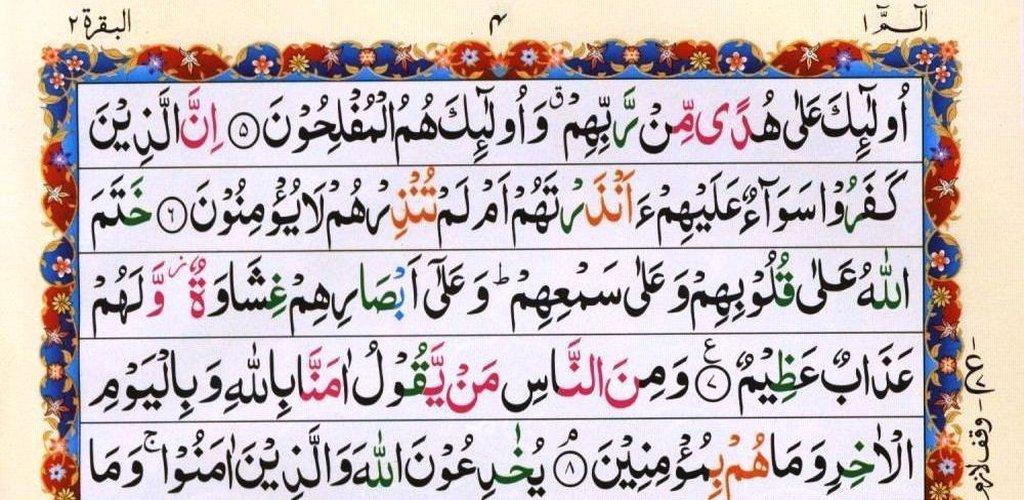 الٓمّٓ ١ ۴ البقرة ٢
اُولٰٓئِكَ عَلٰى هُدًى مِّنْ رَّبِّهِمْ ۗ وَ اُولٰٓئِكَ هُمُ الْمُفْلِحُوْنَ ۝۵ اِنَّ الَّذِيْنَ
كَفَرُوْا سَوَآءٌ عَلَيْهِمْ ءَاَنْذَرْتَهُمْ اَمْ لَمْ تُنْذِرْهُمْ لَا يُؤْمِنُوْنَ ۝۶ خَتَمَ
اللّٰهُ عَلٰى قُلُوْبِهِمْ وَ عَلٰى سَمْعِهِمْ ؕ وَ عَلٰٓى اَبْصَارِهِمْ غِشَاوَةٌ ؗ وَّ لَهُمْ
عَذَابٌ عَظِيْمٌ ۝۷ ع وَ مِنَ النَّاسِ مَنْ يَّقُوْلُ اٰمَنَّا بِاللّٰهِ وَ بِالْيَوْمِ
الْاٰخِرِ وَ مَا هُمْ بِمُؤْمِنِيْنَ ۝۸ۘ يُخٰدِعُوْنَ اللّٰهَ وَ الَّذِيْنَ اٰمَنُوْا ۚ وَ مَا
وقف لازم